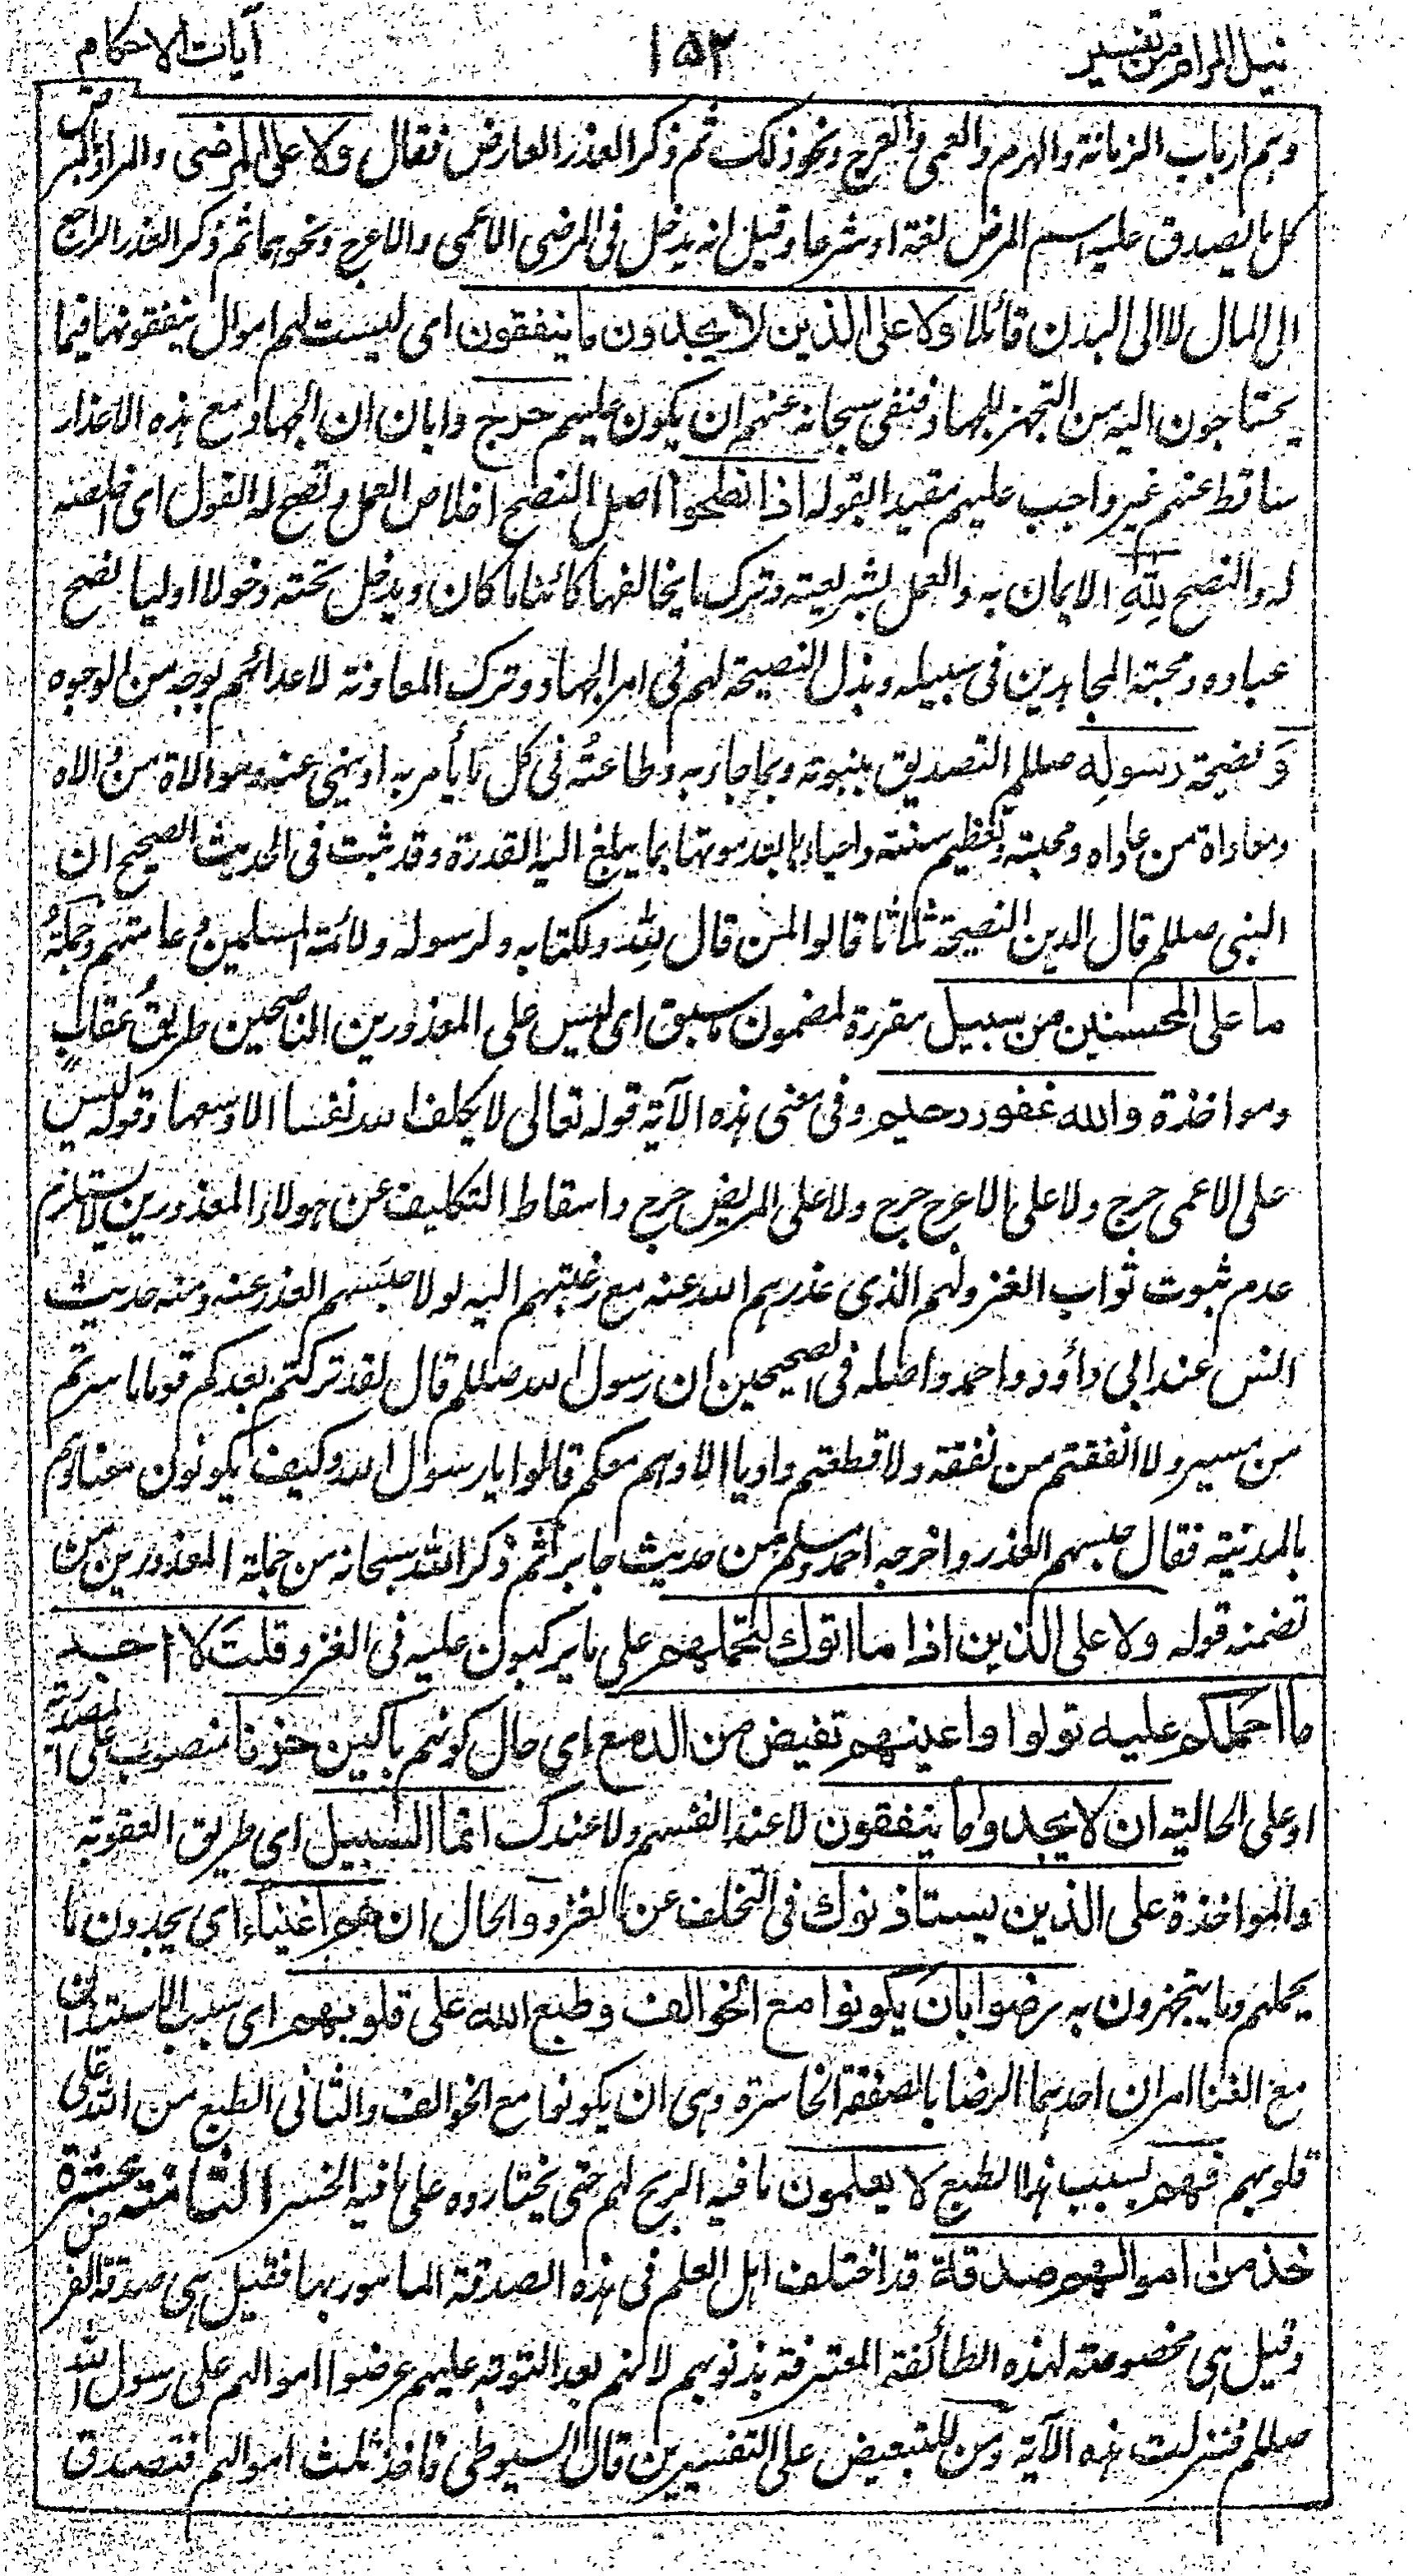 نيل المرام من تفسير ١٥٢ آيات الاحكام
وهم ارباب الزمانة والهرم والعمى والعرج ونحو ذلك ثم ذكر العذر العارض فقال ولا على المرضى والمراد بالمرض
كل ما يصدق عليه اسم المرض لغة او شرعا وقيل انه يدخل فى المرضى الاعمى والاعرج ونحوهما ثم ذكر العذر الراجع
الى المال لا الى البدن قائلا ولا على الذين لا يجدون ما ينفقون اى ليست لهم اموال ينفقونها فيما
يحتاجون اليه من التجهز للجهاد فنفى سبحانه عنهم ان يكون عليهم حرج وابان ان الجهاد مع هذه الاعذار
ساقط عنهم غير واجب عليهم مقيدا بقوله اذا نصحوا اصل النصح اخلاص العمل ونصح له القول اى اخلصه
له والنصح لِلّٰهِ الايمان به والعمل بشريعته وترك ما يخالفها كائنا ما كان ويدخل تحته دخولا اوليا نصح
عباده ومحبة المجاهدين فى سبيله وبذل النصيحة لهم فى امر الجهاد وترك المعاونة لاعدائهم بوجه من الوجوه
وَ نصيحة رسولِه صللم التصديق بنبوته وبما جاء به وطاعتُه فى كل ما يأمر به او ينهى عنه وموالاة من والاه
ومعاداة من عاداه ومحبته وتعظيم سنته واحياءها بعد موتها بما يبلغ اليه القدرة وقد ثبت فى الحديث الصحيح ان
النبى صللم قال الدين النصيحة ثلاثا قالوا لمن قال لِلّٰه ولكتابه ولرسوله ولائمة المسلمين وعامتهم وجملةُ
ما على المحسنين من سبيل مقررة لمضمون ما سبق اى ليس على المعذورين الناصحين طريقُ عقاب
ومواخذة والله غفور رحيم وفى معنى هذه الآية قوله تعالى لا يكلف الله نفسا الا وسعها وقوله ليس
على الاعمى حرج ولا على الاعرج حرج ولا على المريض حرج واسقاط التكليف عن هولاء المعذورين لا يستلزم
عدم ثبوت ثواب الغزو لهم الذى عذرهم الله عنه مع رغبتهم اليه لولا حبسهم العذر عنه ومنه حديث
انس عند ابى دأود واحمد واصله فى الصحيحين ان رسول الله صللم قال لقد تركتم بعدكم قوما ما سرتم
من مسير ولا انفقتم من نفقة ولا قطعتم واديا الا وهم معكم قالوا يا رسول الله وكيف يكونون معنا وهم
بالمدينة فقال حبسهم العذر واخرجه احمد ومسلم من حديث جابر ثم ذكر الله سبحانه من جملة المعذورين من
تضمنه قوله ولا على الذين اذا ما اتوك لتحملهم على ما يركبون عليه فى الغزو قلتَ لا اجد
ما احملكم عليه تولوا واعينهم تفيض من الدمع اى حال كونهم باكين حزنا منصوب على المصدرية
او على الحالية ان لا يجدوا ما ينفقون لا عند انفسهم ولا عندك انما السبيل اى طريق العقوبة
والمواخذة على الذين يستاذنوك فى التخلف عن الغزو والحال ان هم اغنياء اى يجدون ما
يحملهم وما يتجهزون به رضوا بان يكونوا مع الخوالف وطبع الله على قلوبهم اى سبب الاستيذان
مع الغنا امران احدهما الرضا بالصفقة الخاسرة وهى ان يكونوا مع الخوالف والثانى الطبع من الله على
قلوبهم فهم بسبب هذا الطبع لا يعلمون ما فيه الربح لهم حتى يختاروه على ما فيه الخسر الثامنة عشرة
خذ من اموالهم صدقة قد اختلف اهل العلم فى هذه الصدقة المامور بها فقيل هى صدقة الفرض
وقيل هى مخصوصته لهذه الطائفة المعترفة بذنوبهم لانهم بعد التوبة عليهم عرضوا اموالهم على رسول الله
صللم فنزلت هذه الآية ومن للتبعيض على التفسيرين قال السيوطى فاخذ ثلث اموالهم فتصدق